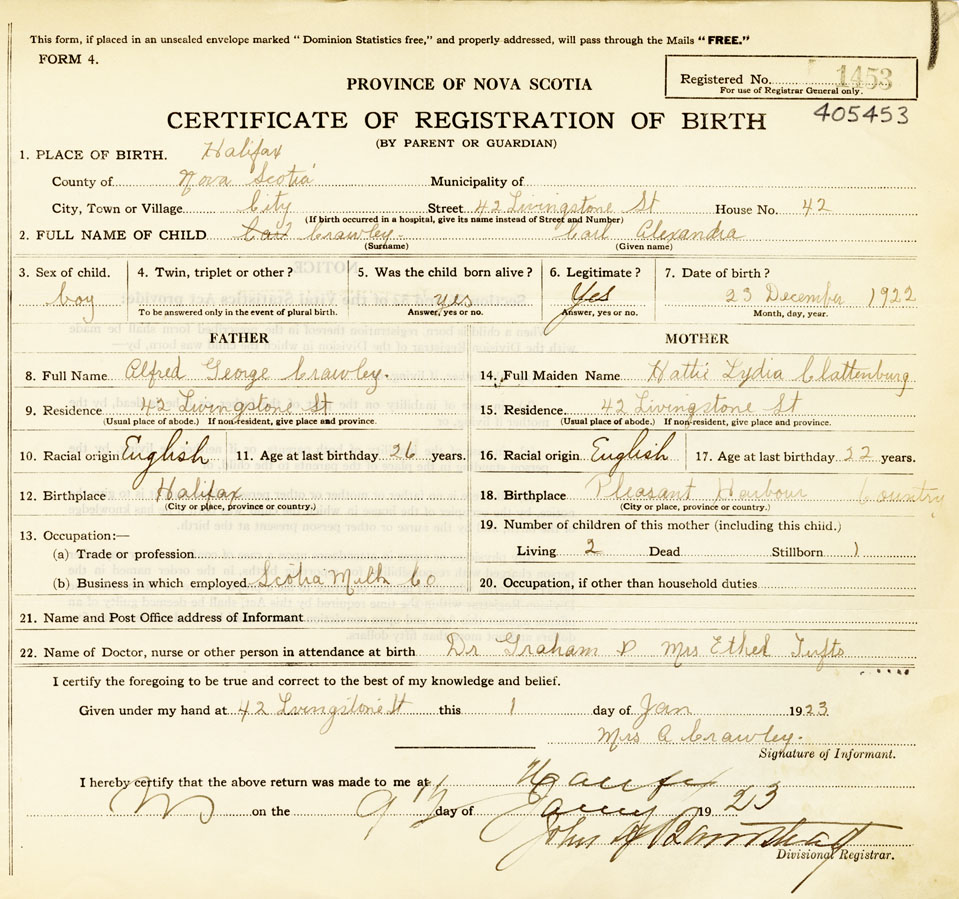 This form, if placed in an unsealed envelope marked "Dominion Statistics free," and properly addressed, will pass through the Mails "FREE."
FORM 4.
Registered No. 1453
For use of Registrar General only.
PROVINCE OF NOVA SCOTIA
405453
CERTIFICATE OF REGISTRATION OF BIRTH
(BY PARENT OR GUARDIAN)
1. PLACE OF BIRTH. Halifax
County of Nova Scotia Municipality of
City, Town or Village City Street 42 Livingstone St House No. 42
(If birth occurred in a hospital, give its name instead of Street and Number)
2. FULL NAME OF CHILD Crawley Carl Alexandra
(Surname) (Given name)
3. Sex of child. 4. Twin, triplet or other? 5. Was the child born alive? 6. Legitimate? 7. Date of birth?
boy yes Yes 23 December 1922
To be answered only in the event of plural birth. Answer, yes or no. Answer, yes or no. Month, day, year.
FATHER MOTHER
8. Full Name Alfred George Crawley. 14. Full Maiden Name Hattie Lydia Clattenburg
9. Residence 42 Livingstone St 15. Residence. 42 Livingstone St
(Usual place of abode.) If non-resident, give place and province. (Usual place of abode.) If non-resident, give place and province.
10. Racial origin English 11. Age at last birthday 26 years. 16. Racial origin English 17. Age at last birthday 22 years.
12. Birthplace Halifax 18. Birthplace Pleasant Harbour Country
(City or place, province or country.) (City or place, province or country.)
13. Occupation:— 19. Number of children of this mother (including this child.)
(a) Trade or profession Living 2 Dead Stillborn 1
(b) Business in which employed Scotia Milk Co 20. Occupation, if other than household duties
21. Name and Post Office address of Informant
22. Name of Doctor, nurse or other person in attendance at birth Dr Graham Mrs Ethel Tufts
I certify the foregoing to be true and correct to the best of my knowledge and belief.
Given under my hand at 42 Livingstone St this 1 day of Jan 1923
Mrs A Crawley.
Signature of Informant.
I hereby certify that the above return was made to me at Halifax
on the 9th day of 1923
John A
Divisional Registrar.